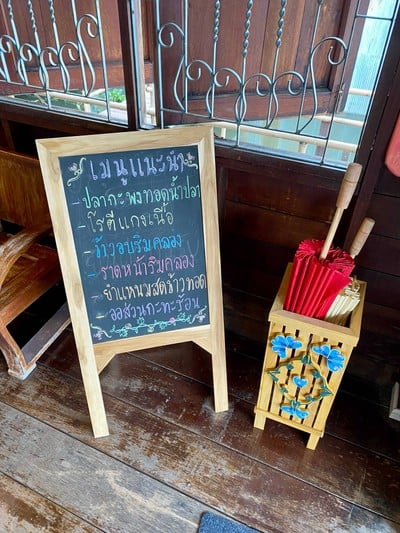 เมนูแนะนำ
- ปลากะพงทอดน้ำปลา
- โรตีแกงเนื้อ
- ข้าวอบริมคลอง
- ราดหน้าริมคลอง
- ยำแหนมสดข้าวทอด
- ออส่วนกะทะร้อน